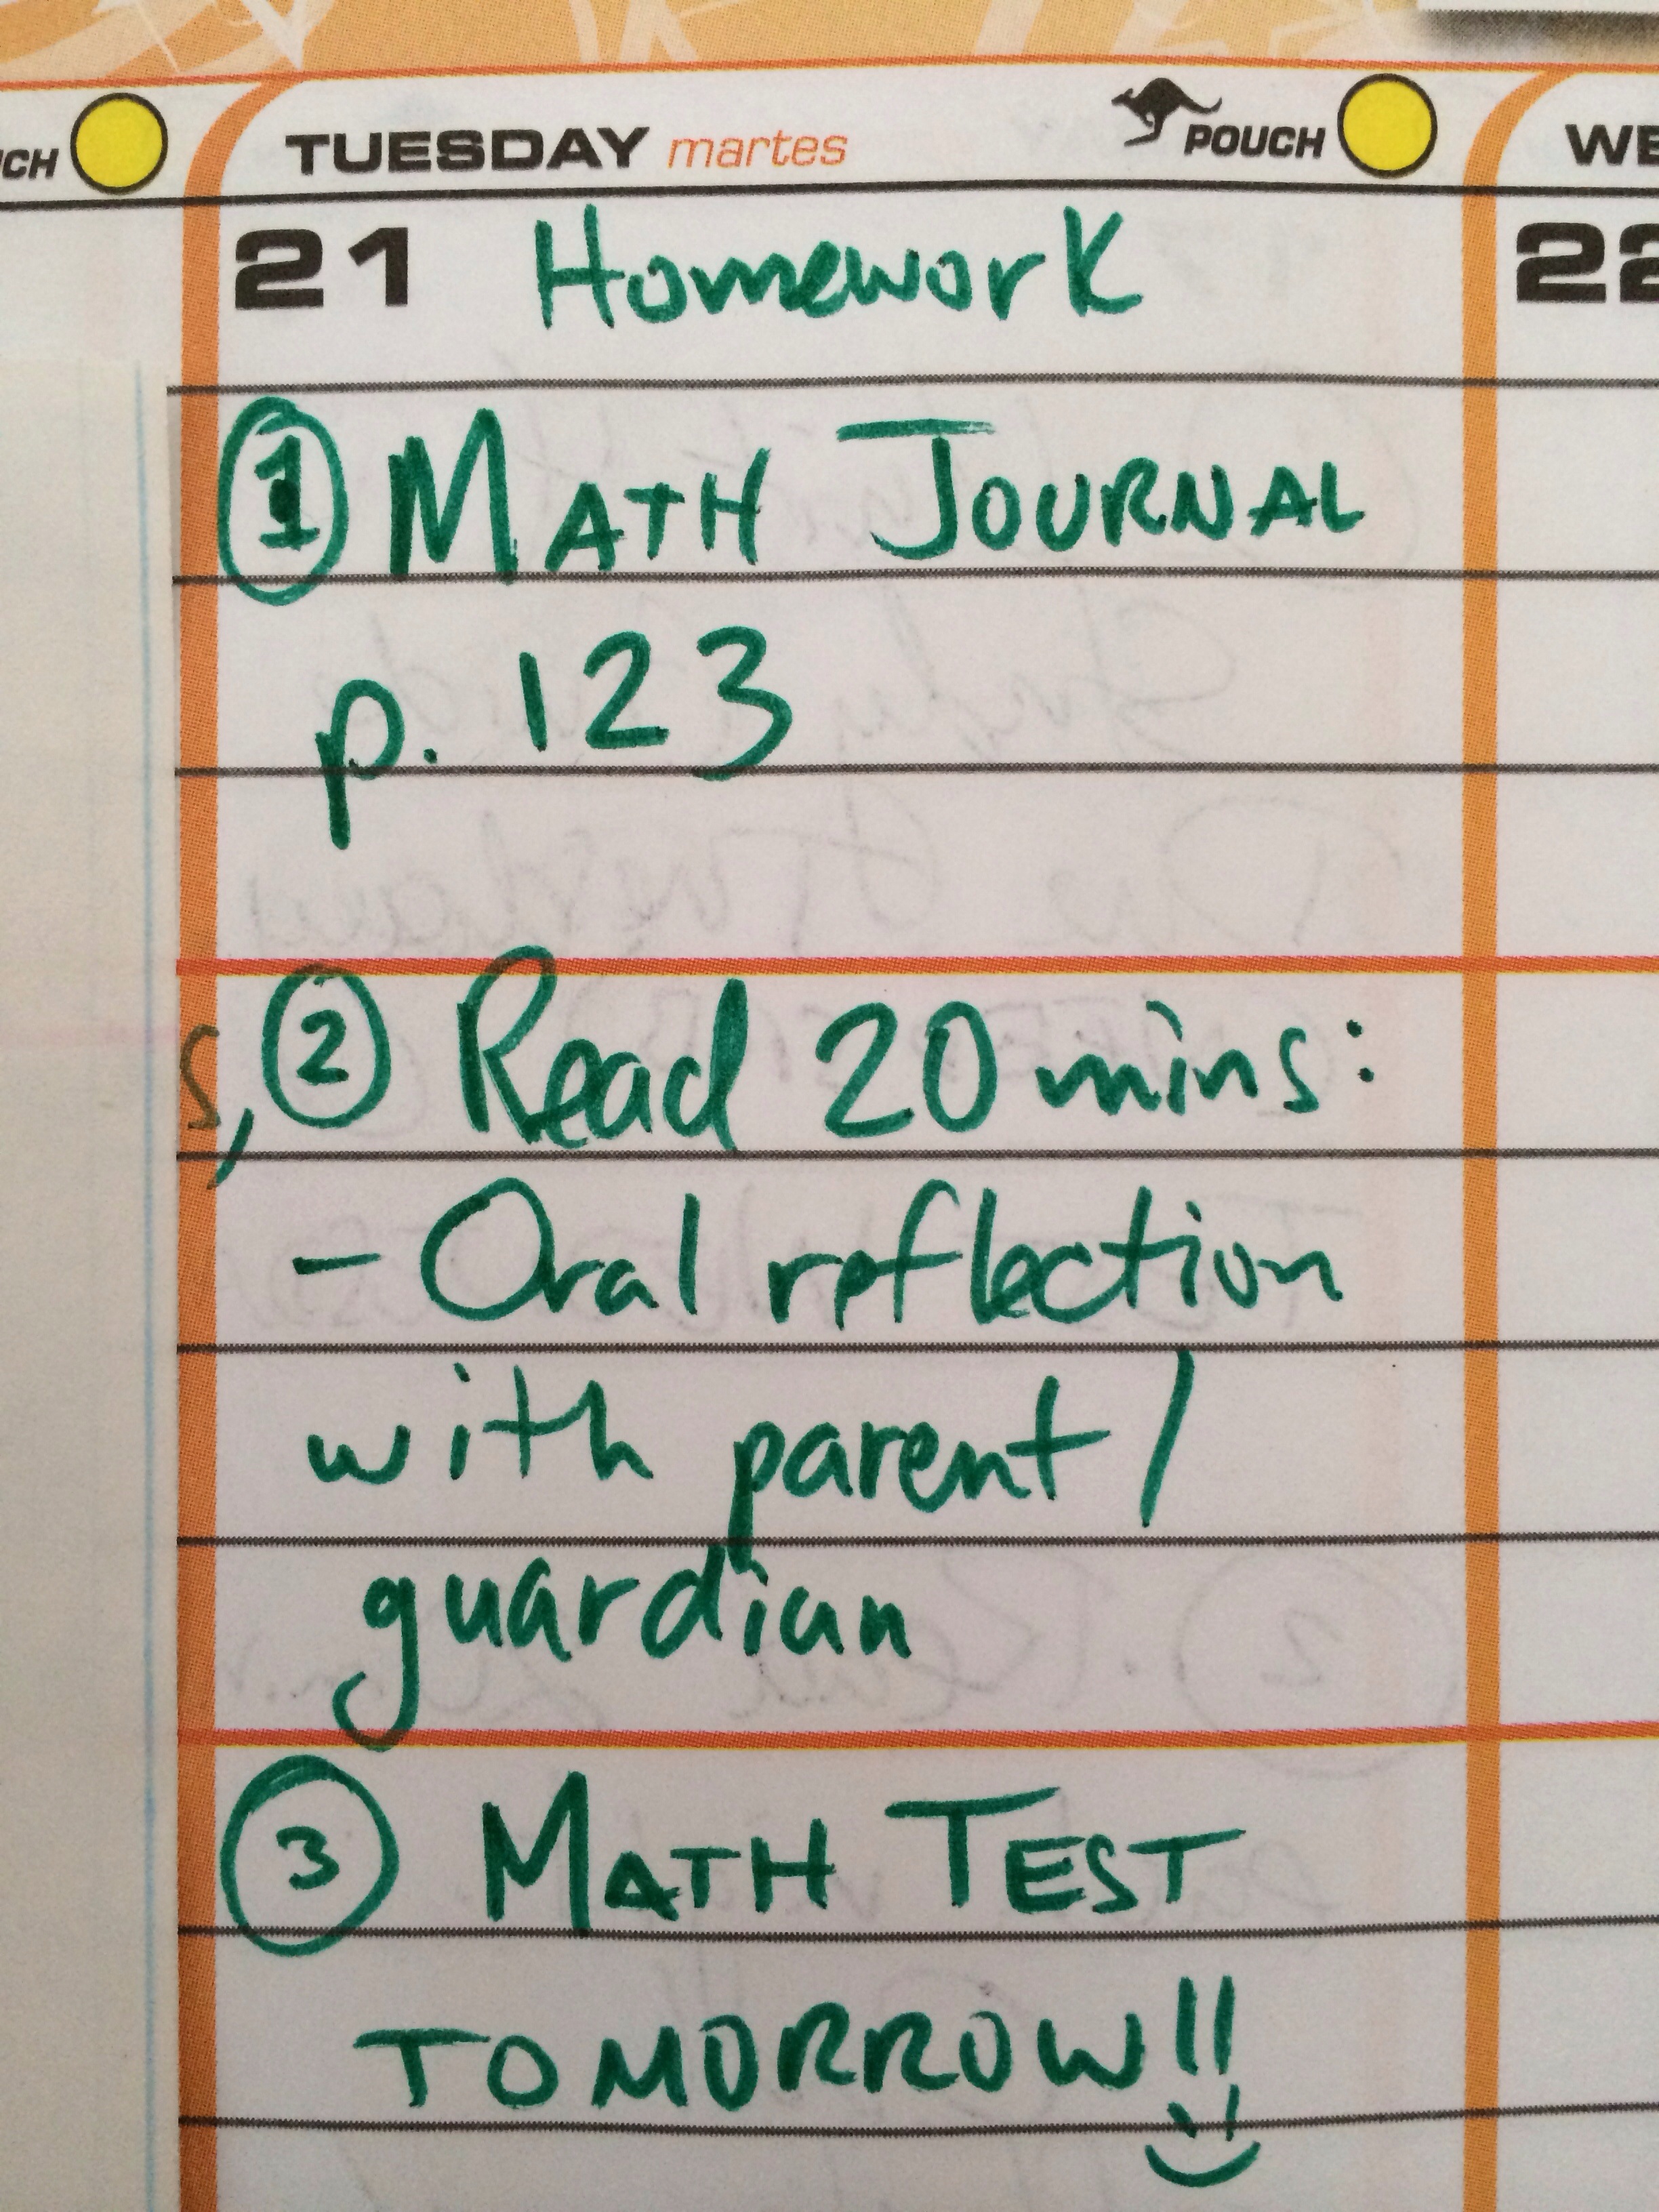 CH
TUESDAY martes POUCH WE
21 Homework 22
1 MATH JOURNAL
p. 123
s, 2 Read 20 mins:
- Oral reflection
with parent/
guardian
3 MATH TEST
TOMORROW!!